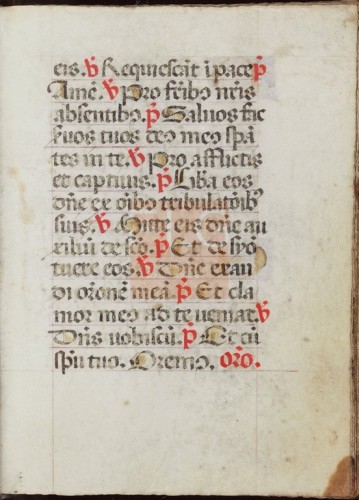 eis. ℣ Requiescāt ī pace ℟
Amē. ℣ Pro fr̄ibꝰ nr̄is
absentibꝰ. ℟ Saluos fac
s̄uos tuos deꝰ meꝰ spā
tes in te. ℣ Pro afflictis
et captiuis. ℟ Lib̄a eos
dn̄e ex oībꝰ tribulatōībꝰ
suis. ℣ Mitte eis dn̄e au
xiliū de sc̄o. ℟ Et de syō
tuere eos. ℣ Dn̄e exau
di orōnē meā. ℟ Et cla
mor meꝰ ad te ueniat. ℣
Dn̄s uobiscū. ℟ Et cū
sp̄u tuo. Oremꝰ. orō.